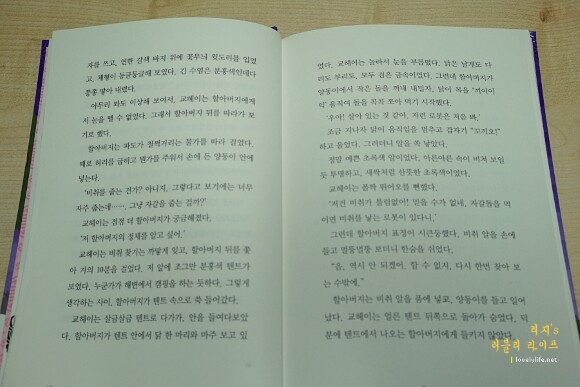 자를 쓰고, 연한 갈색 바지 위에 꽃무늬 윗도리를 입었
고, 체형이 둥글둥글해 보였다. 긴 수염은 분홍색인데다
꽁꽁 땋아 내렸다.
아무리 봐도 이상해 보여서, 교헤이는 할아버지에게
서 눈을 뗄 수 없었다. 그래서 할아버지 뒤를 따라가 보
기로 했다.
할아버지는 파도가 철썩거리는 물가를 따라 걸었다.
때로 허리를 굽히고 뭔가를 주워서 손에 든 양동이 안에
넣는다.
'비취를 줍는 건가? 아니지, 그렇다고 보기에는 너무
자주 줍는데……. 그냥 자갈을 줍는 걸까?'
교헤이는 점점 더 할아버지가 궁금해졌다.
'저 할아버지의 정체를 알고 싶어.'
교헤이는 비취 찾기는 까맣게 잊고, 할아버지 뒤를 쫓
아 거의 10분을 걸었다. 저 앞에 조그만 분홍색 텐트가
보였다. 누군가가 해변에서 캠핑을 하는 듯하다. 그렇게
생각하는 사이, 할아버지가 텐트 속으로 쏙 들어갔다.
교헤이는 살금살금 텐트로 다가가, 안을 들여다보았
다. 할아버지가 텐트 안에서 닭 한 마리와 마주 보고 있
었다. 교헤이는 놀라서 눈을 부릅떴다. 닭은 날개도 다
리도 부리도, 모두 검은 금속이었다. 그런데 할아버지가
양동이에서 작은 돌을 꺼내 내밀자, 닭이 목을 '끼이이
이' 움직여 돌을 콕콕 쪼아 먹기 시작했다.
'우아! 살아 있는 것 같아. 저런 로봇은 처음 봐.'
조금 지나자 닭이 움직임을 멈추고 갑자기 "꼬끼오!"
하고 울었다. 그러더니 알을 똑 낳았다.
정말 예쁜 초록색 알이었다. 아른아른 속이 비쳐 보일
듯 투명하고, 새싹처럼 산뜻한 초록색이었다.
교헤이는 풀쩍 뛰어오를 뻔했다.
'저건 비취가 틀림없어! 믿을 수가 없네, 자갈돌을 먹
이면 비취를 낳는 로봇이 있다니.'
그런데 할아버지 표정이 시큰둥했다. 비취 알을 손에
들고 멀뚱멀뚱 보더니 한숨을 쉬었다.
"음, 역시 안 되겠어. 할 수 없지, 다시 한번 찾아 보
는 수밖에."
할아버지는 비취 알을 품에 넣고, 양동이를 들고 일어
났다. 교헤이는 얼른 텐트 뒤쪽으로 돌아가 숨었다. 덕
분에 텐트에서 나오는 할아버지에게 들키지 않았다.
리지's
러블리 라이프
lovelylife.net